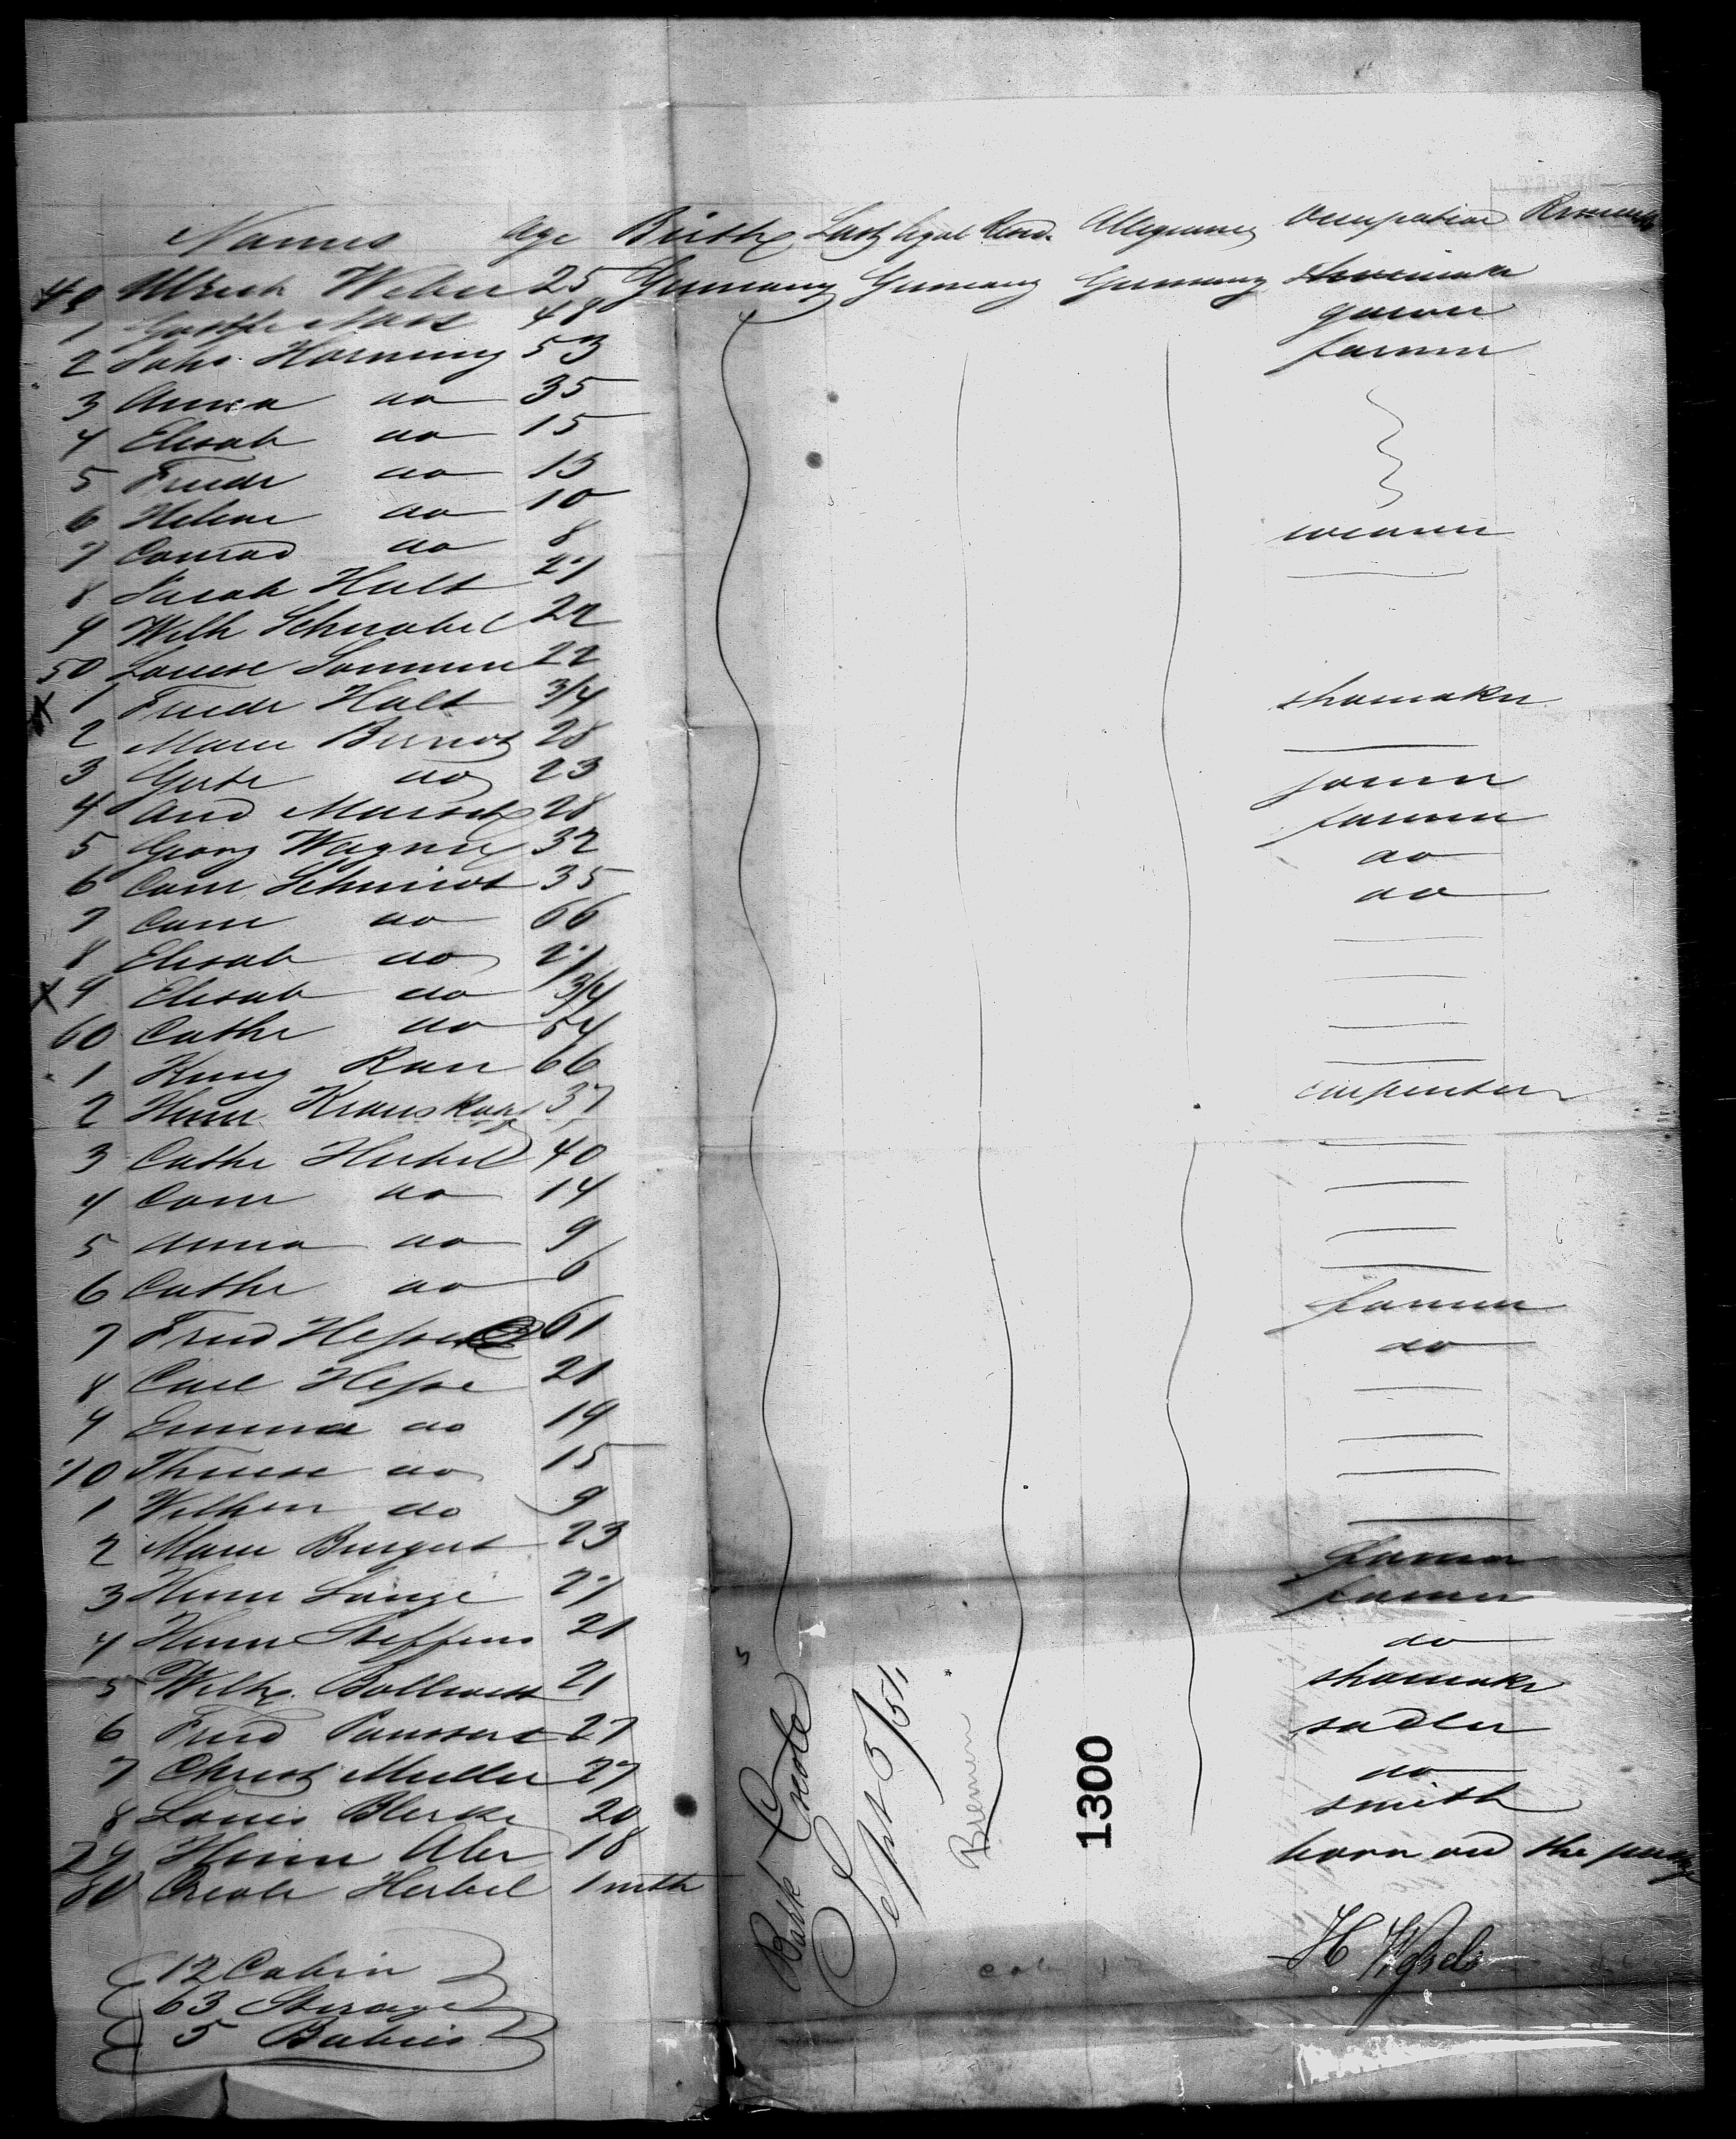 Names Age Birth Last legal Resd. Allegiance Occupation Remarks
40 Ulrich Weber 25 Germany Germany Germany shoemaker
1 48
2 Johs Horning 53 farmer
3 Anna do 35
4 Elisab do 15
5 Friedr do 13
6 Helene do 10
7 Conrad do 8
8 Jacob Hult 27 weaver
9 Wilh Schnabel 22
50 Louise Sommer 22
x 1 Friedr Halt 3/4
2 Marie 28 shomaker
3 do 23
4 And 28 joiner
5 Georg Wagner 32 farmer
6 Conr Schmidt 35 do
7 Conr do 66 do
8 Elisab do 27
x 9 Elisab do 3/4
60 Cathr do 54
1 Rau 66
2 Henr Krauskopf 37 carpenter
3 Cathr Herbel 40
4 Conr do 14
5 Anna do 9
6 Cathr do 6
7 Fried Hesse 61 farmer
8 Carl Hesse 21 do
9 Emma do 19
70 Therese do 15
1 Wilhm do 9
2 Marie Burgert 23
3 Henr Lange 27 farmer
4 Henr Steffens 21 farmer
5 Wilh. 21 do
6 Fried 27 shomaker
7 Christ Muller 27 sadler
8 Louis 20 do
79 Heinr 18 smith
80 Creole Herbel 1 mth born on the passage
12 Cabin
63 Sterage
5 Babies
Bark Creole
Sept 5/54
Bremen
1300
H Wessels